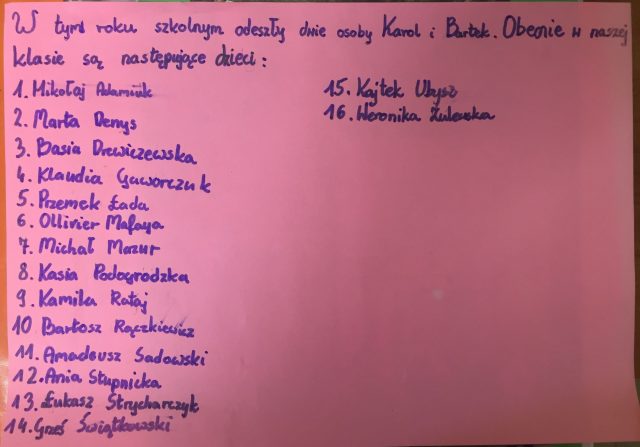 W tym roku szkolnym odeszły dwie osoby Karol i Bartek. Obecnie w naszej
klasie są następujące dzieci:
1. Mikołaj Adamiuk
2. Marta Denys
3. Basia Drewiczewska
4. Klaudia Gaworczuk
5. Przemek Łada
6. Ollivier Mafaya
7. Michał Mazur
8. Kasia Podogrodzka
9. Kamila Rataj
10 Bartosz Rączkiewicz
11. Amadeusz Sadowski
12. Ania Słupnicka
13. Łukasz Strycharczyk
14. Grześ Świątkowski
15. Kajtek Ułysz
16. Weronika Żulewska